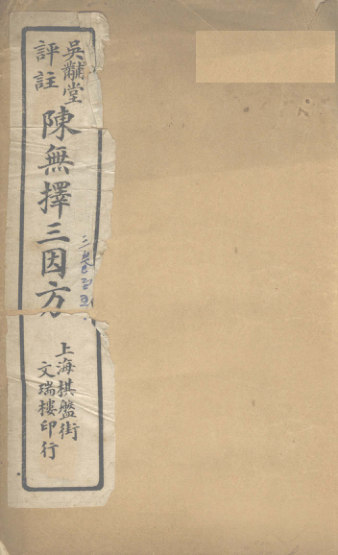 吳黼堂
評註
陳無擇三因方
上海棋盤街
文瑞樓印行